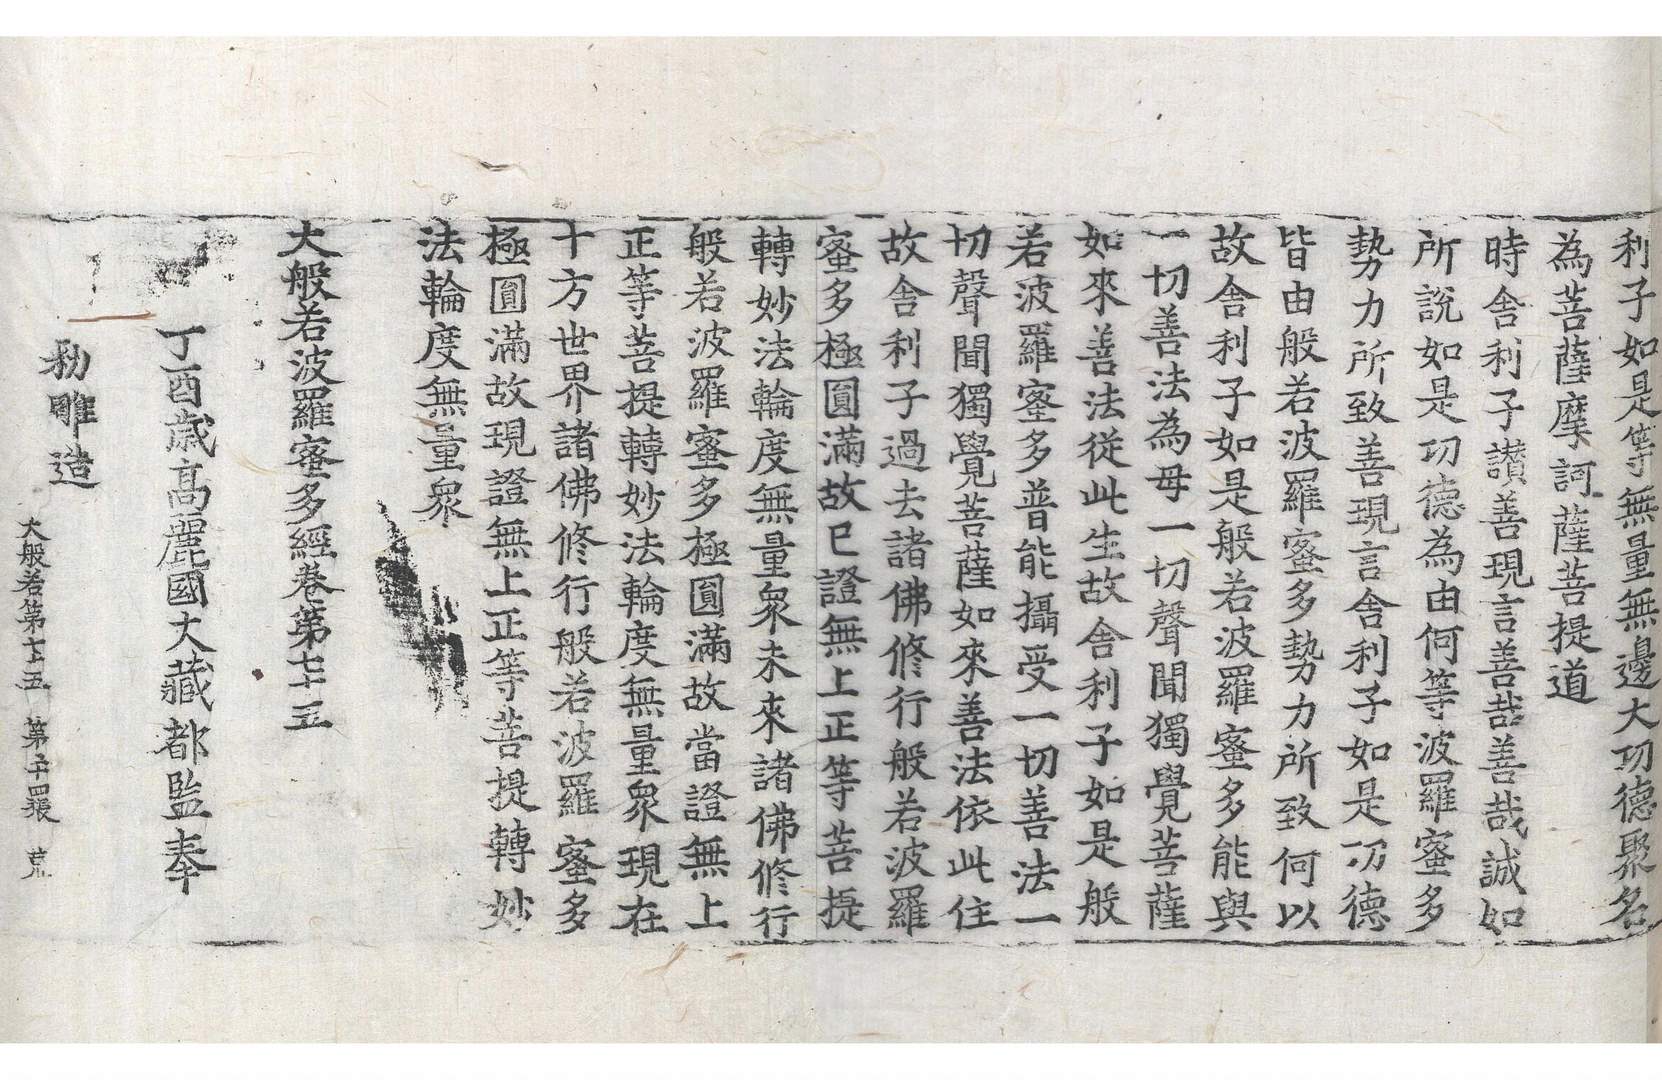 利子如是等無量無邊大功德聚名
為菩薩摩訶薩菩提道
時舍利子讚善現言善哉善哉誠如
所說如是功德為由何等波羅蜜多
勢力所致善現言舍利子如是功德
皆由般若波羅蜜多勢力所致何以
故舍利子如是般若波羅蜜多能與
一切善法為母一切聲聞獨覺菩薩
如來善法從此生故舍利子如是般
若波羅蜜多普能攝受一切善法一
切聲聞獨覺菩薩如來善法依此住
故舍利子過去諸佛修行般若波羅
蜜多極圓滿故已證無上正等菩提
轉妙法輪度無量眾未來諸佛修行
般若波羅蜜多極圓滿故當證無上
正等菩提轉妙法輪度無量眾現在
十方世界諸佛修行般若波羅蜜多
極圓滿故現證無上正等菩提轉妙
法輪度無量眾
大般若波羅蜜多經卷第七十五
丁酉歲高麗國大藏都監奉
勑雕造
大般若第七十五 第二十四張 荒